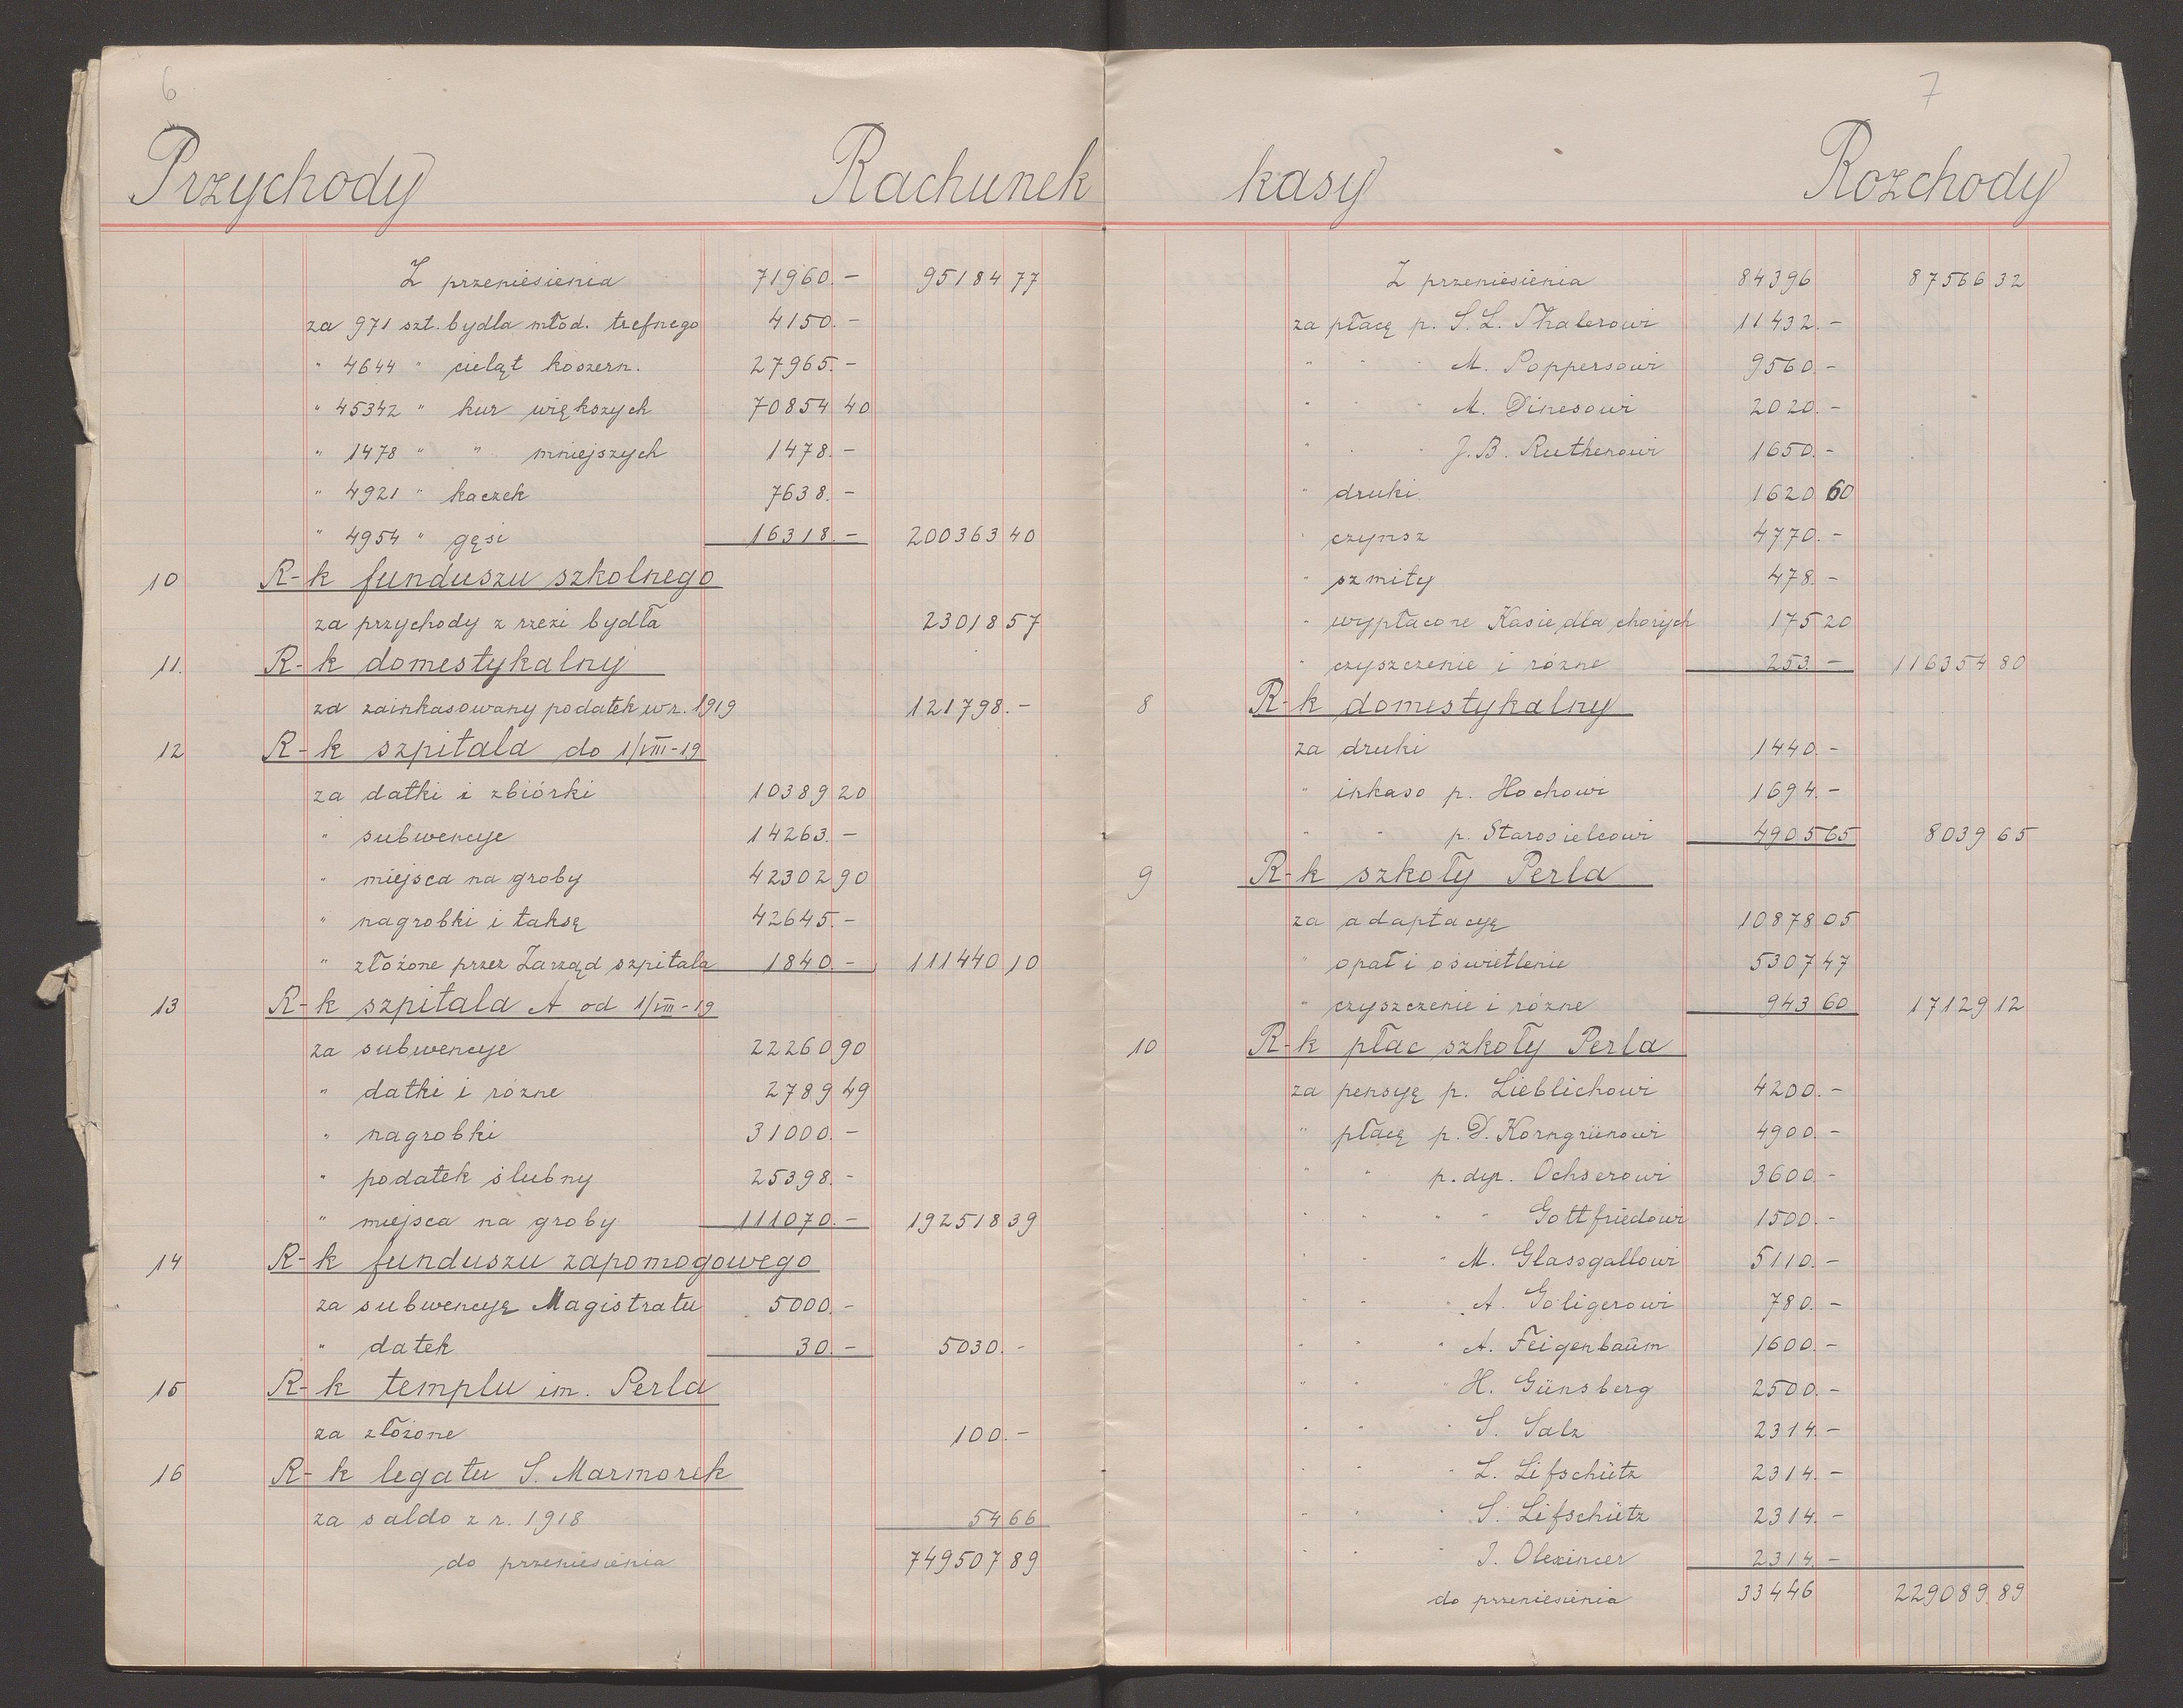 6
Przychody Rachunek
Z przeniesienia 71960.- 95184 77
za 971 szt. bydła młod. trefnego 4150.-
" 4644 " cieląt koszern. 27965.-
" 45342 " kur większych 70854 40
" 1478 " " mniejszych 1478.-
" 4921 " kaczek 7638.-
" 4954 " gęsi 16318.- 200363 40
10 R-k funduszu szkolnego
za przychody z rzezi bydła 23018 57
11. R-k domestykalny
za zainkasowany podatek w r. 1919 121798.-
12 R-k szpitala do 1/VIII-19
za datki i zbiórki 10389 20
" subwencye 14263.-
" miejsca na groby 42302 90
" nagrobki i taksę 42645.-
" złożone przez Zarząd szpitala 1840.- 111440 10
13 R-k szpitala A od 1/VIII-19
za subwencye 22260 90
" datki i różne 2789 49
" nagrobki 31000.-
" podatek ślubny 25398.-
" miejsca na groby 111070.- 192518 39
14 R-k funduszu zapomogowego
za subwencyę Magistratu 5000.-
" datek 30.- 5030.-
15 R-k templu im. Perla
za złożone 100.-
16 R-k legatu S. Marmorek
za saldo z r. 1918 54 66
do przeniesienia 749507 89
7
kasy Rozchody
Z przeniesienia 84396 87566 32
za płacę p. S. L. Thalerowi 11432.-
" " " M. Poppersowi 9560.-
" " " M. Dinesowi 2020.-
" " " J. B. Rutherowi 1650.-
" druki 1620 60
" czynsz 4770.-
" szmity 478.-
" wypłacone Kasie dla chorych 175 20
" czyszczenie i różne 253.- 116354 80
8 R-k domestykalny
za druki 1440.-
" inkaso p. Hochowi 1694.-
" " p. Starosielcowi 4905 65 8039 65
9 R-k szkoły Perla
za adaptacyę 10878 05
" opał i oświetlenie 5307 47
" czyszczenie i różne 943 60 17129 12
10 R-k płac szkoły Perla
za pensyę p. Lieblichowi 4200.-
" płacę p. D. Korngrünowi 4900.-
" " p. dyr. Ochserowi 3600.-
" " " " Gottfriedowi 1500.-
" " " M. Glassgallowi 5110.-
" " " A. Goligerowi 780.-
" " " A. Feigenbaum 1600.-
" " " H. Günsberg 2500.-
" " " S. Salz 2314.-
" " " L. Lifschütz 2314.-
" " " S. Lifschütz 2314.-
" " " J. Olexincer 2314.-
do przeniesienia 33446 229089 89